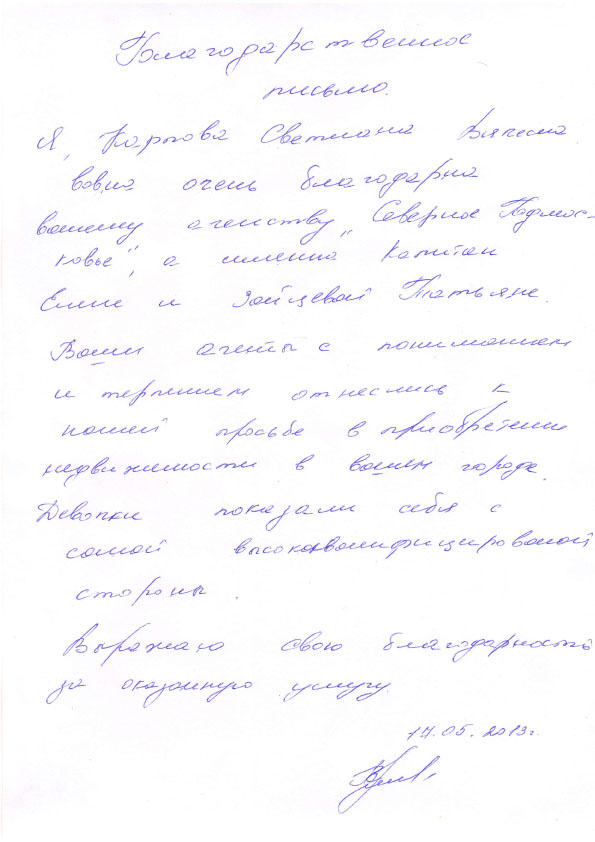 Благодарственное
письмо.
Я, Карпова Светлана Вячесла
вовна очень благодарна
вашему агенству „Северное Подмос-
ковье", а именно Капитан
Елене и Зайцевой Татьяне.
Ваши агенты с пониманием
и терпением отнеслись к
нашей просьбе в приобретении
недвижимости в вашем городе.
Девочки показали себя с
самой высококвалифицированой
стороны.
Выражаю свою благодарность
за оказанную услугу.
17.05.2013г.